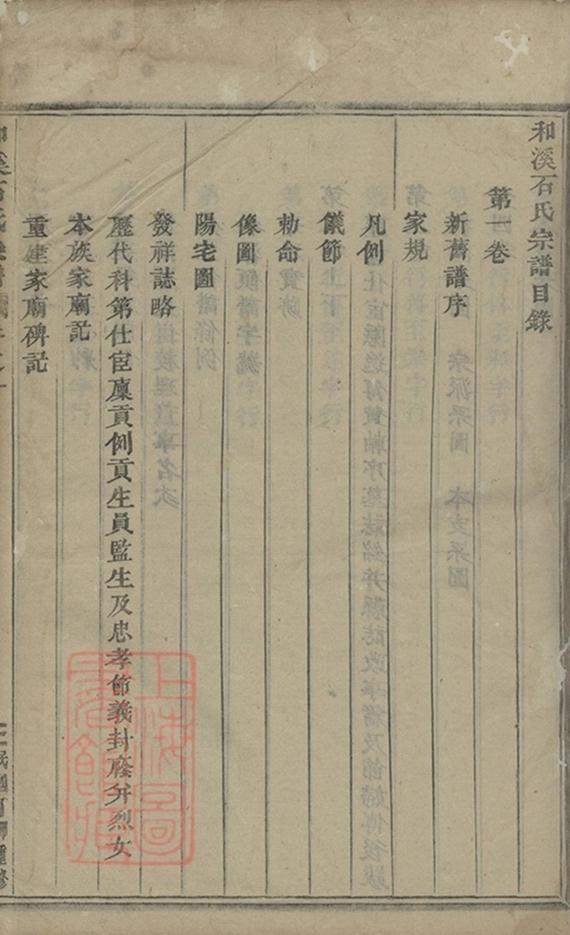 和溪石氏宗譜目錄
第一卷
新舊譜序
家規
凡例
儀節
勅命
像圖
陽宅圖
發祥誌略
歷代科第仕宦廩貢例貢生員監生及忠孝節義封廕并烈女
本族家廟記
重建家廟碑記